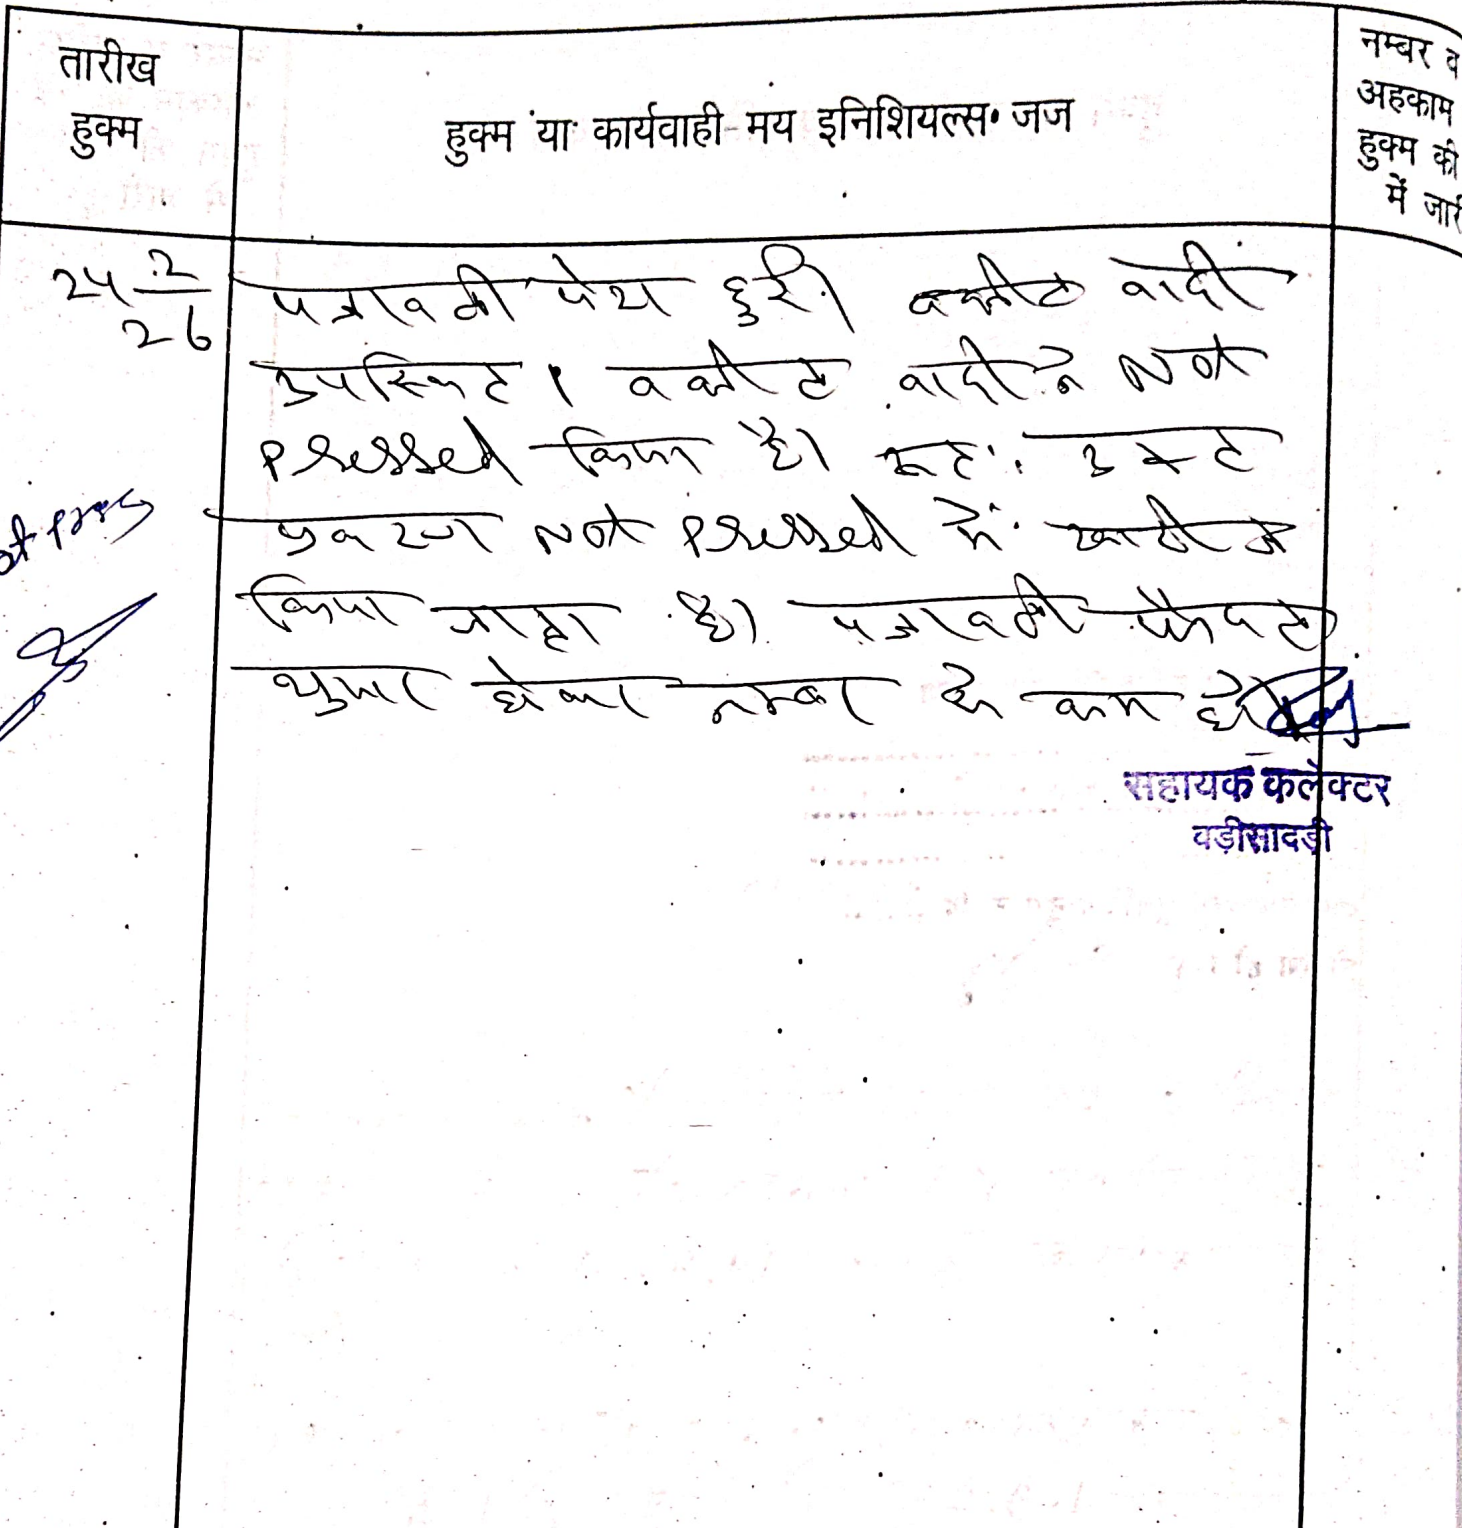 तारीख
हुक्म
हुक्म या कार्यवाही मय इनिशियल्स जज
नम्बर व
अहकाम
हुक्म की
में जारी
24 2/26
पत्रावली पेश हुई। वकील वादी
उपस्थित। वकील वादी ने Not
pressed किया है। अतः उक्त
प्रकरण Not pressed में खारीज
किया जाता है। पत्रावली फैसल
शुमार होकर नम्बर से कम हो।
सहायक कलेक्टर
बड़ीसादड़ी